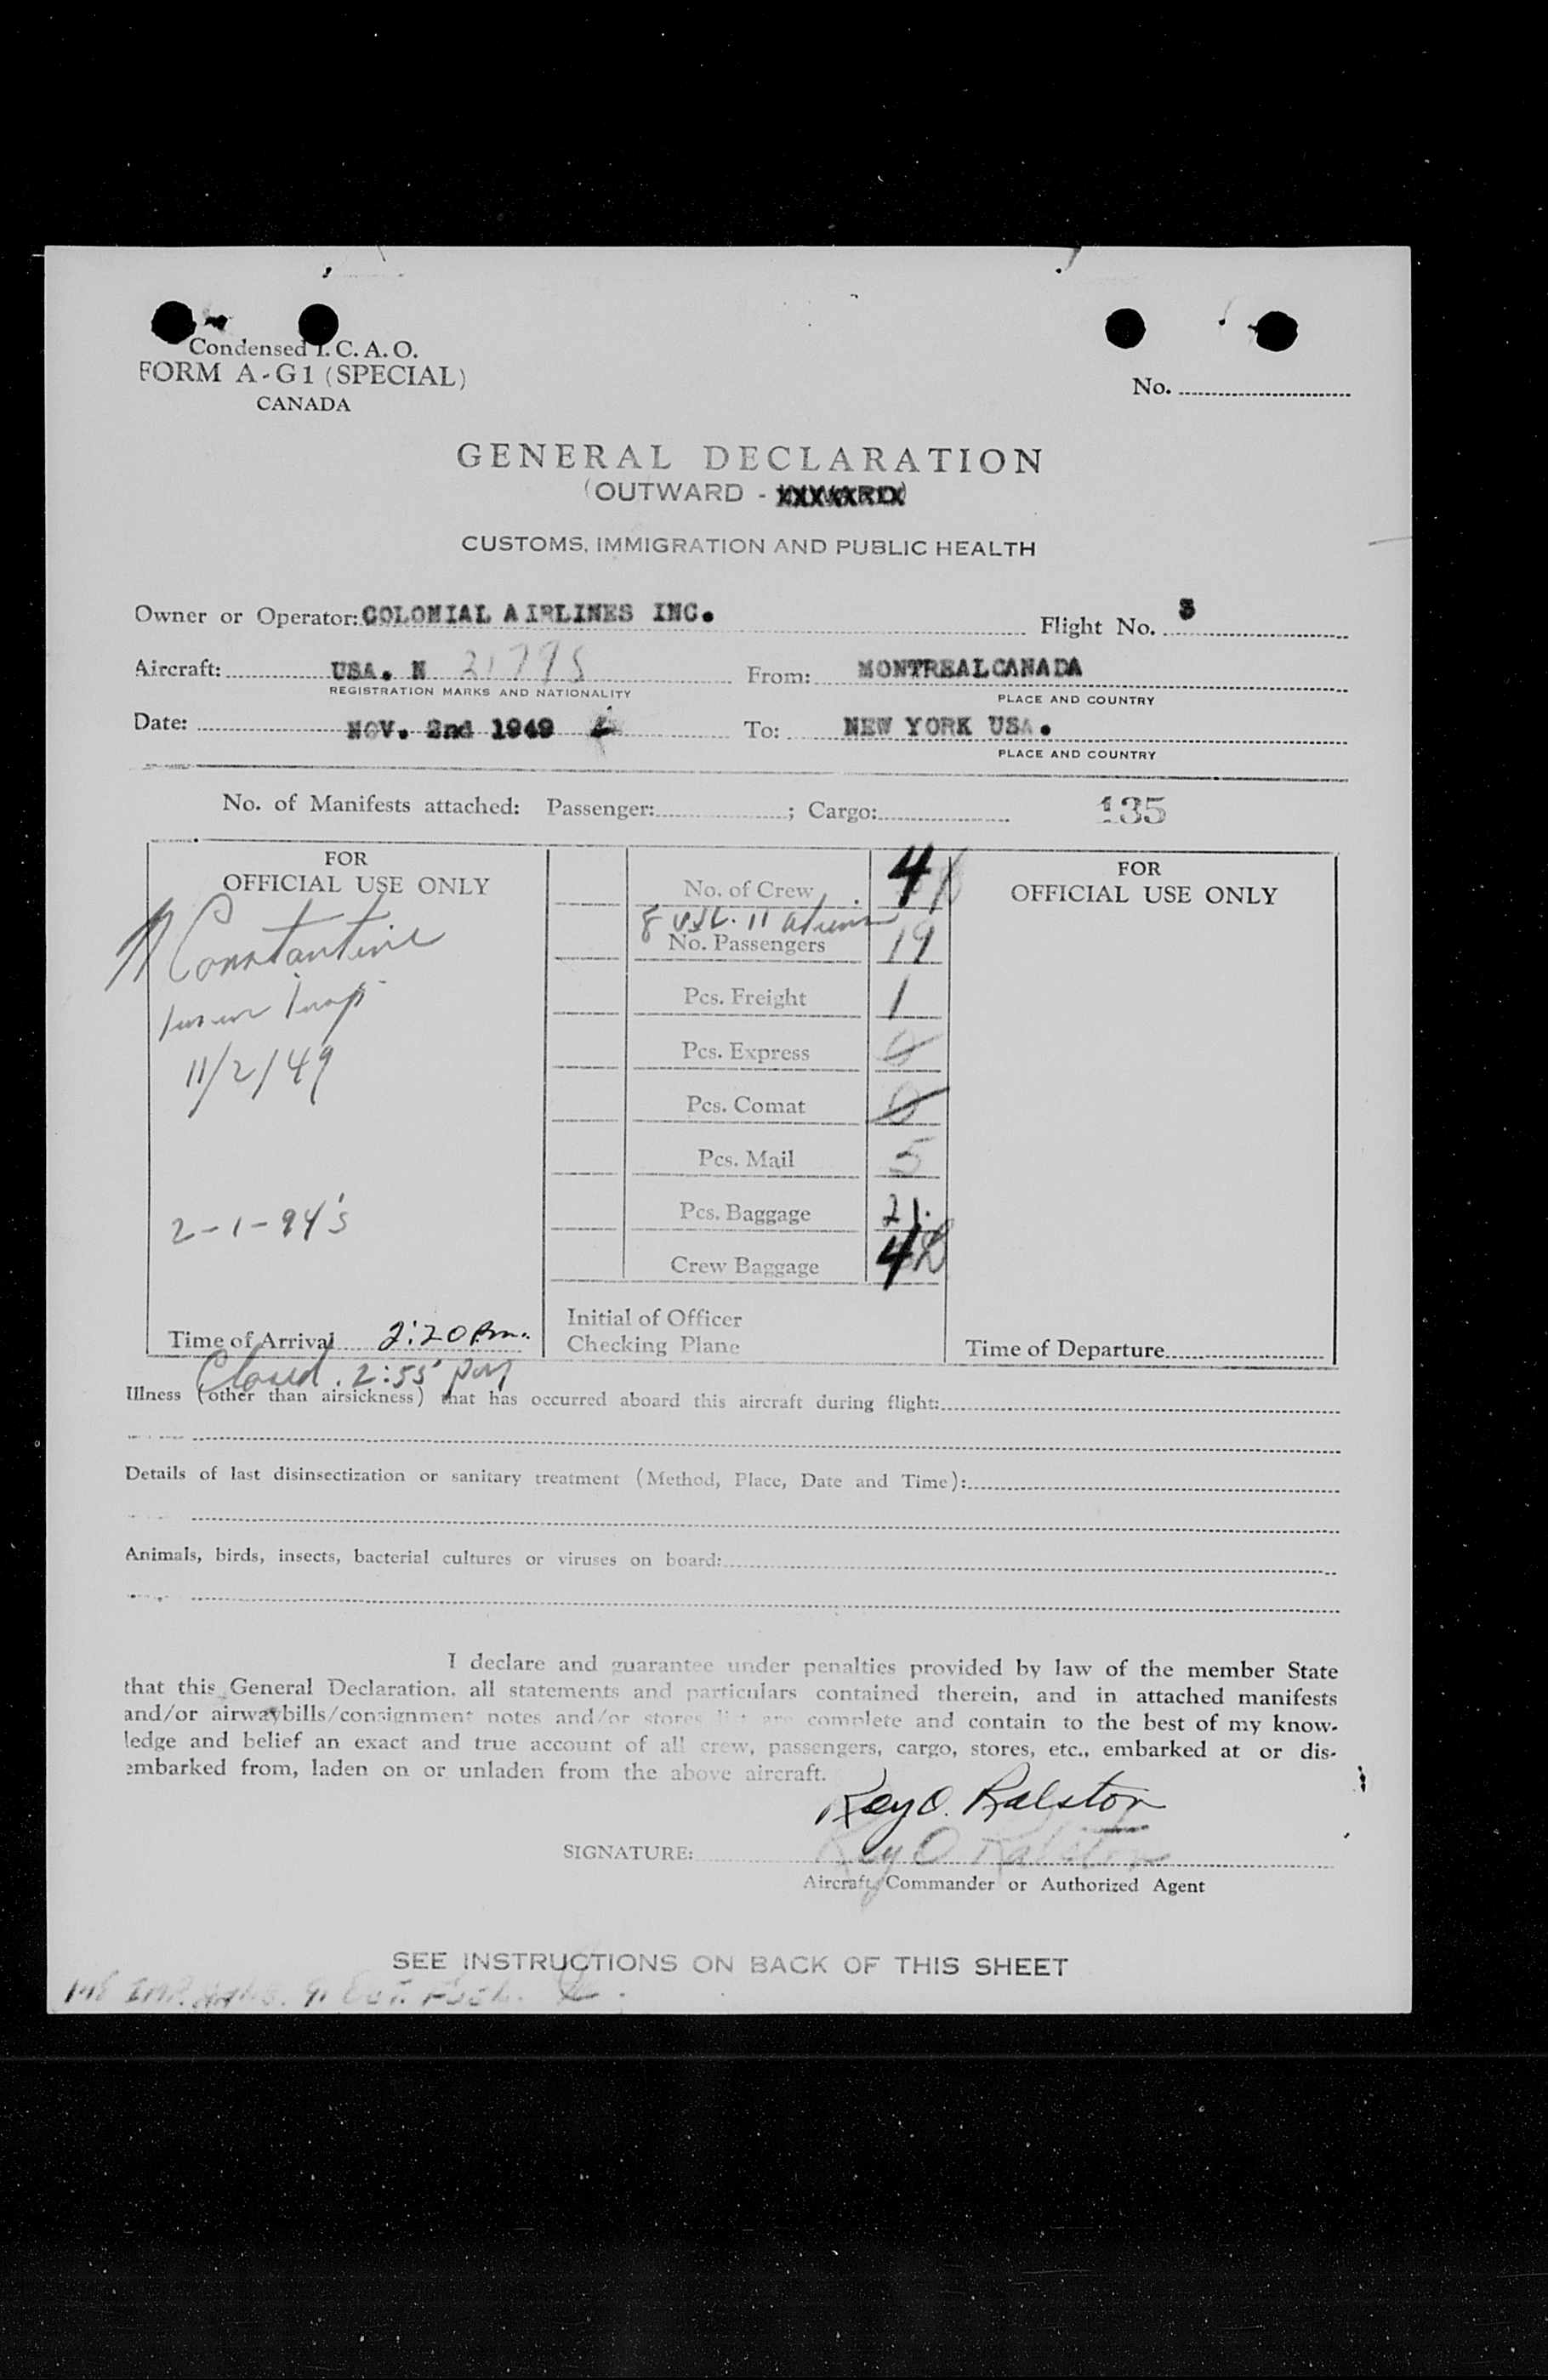 Condensed I. C. A. O.
FORM A-G1 (SPECIAL)
CANADA
No.
GENERAL DECLARATION
(OUTWARD -
CUSTOMS, IMMIGRATION AND PUBLIC HEALTH
Owner or Operator: COLONIAL AIRLINES INC.
Flight No.
Aircraft: USA. N 21795 From: MONTREAL CANADA
REGISTRATION MARKS AND NATIONALITY PLACE AND COUNTRY
Date: NOV. 2nd 1949 To: NEW YORK USA.
PLACE AND COUNTRY
No. of Manifests attached: Passenger: ; Cargo: 135
FOR
OFFICIAL USE ONLY
Constantine
11/2/49
2-1-94's
Time of Arrival 2:20 Pm.
Closed. 2:55 pm
No. of Crew 4
8 USC. 11 aliens
No. Passengers 19
Pcs. Freight 1
Pcs. Express 0
Pcs. Comat 0
Pcs. Mail 5
Pcs. Baggage 21.
Crew Baggage 4
Initial of Officer
Checking Plane
FOR
OFFICIAL USE ONLY
Time of Departure
Illness (other than airsickness) that has occurred aboard this aircraft during flight:
Details of last disinsectization or sanitary treatment (Method, Place, Date and Time):
Animals, birds, insects, bacterial cultures or viruses on board:
I declare and guarantee under penalties provided by law of the member State
that this General Declaration, all statements and particulars contained therein, and in attached manifests
and/or airwaybills/consignment notes and/or stores list are complete and contain to the best of my know-
ledge and belief an exact and true account of all crew, passengers, cargo, stores, etc., embarked at or dis-
embarked from, laden on or unladen from the above aircraft.
Roy O. Ralston
SIGNATURE: Roy O Ralston
Aircraft Commander or Authorized Agent
SEE INSTRUCTIONS ON BACK OF THIS SHEET